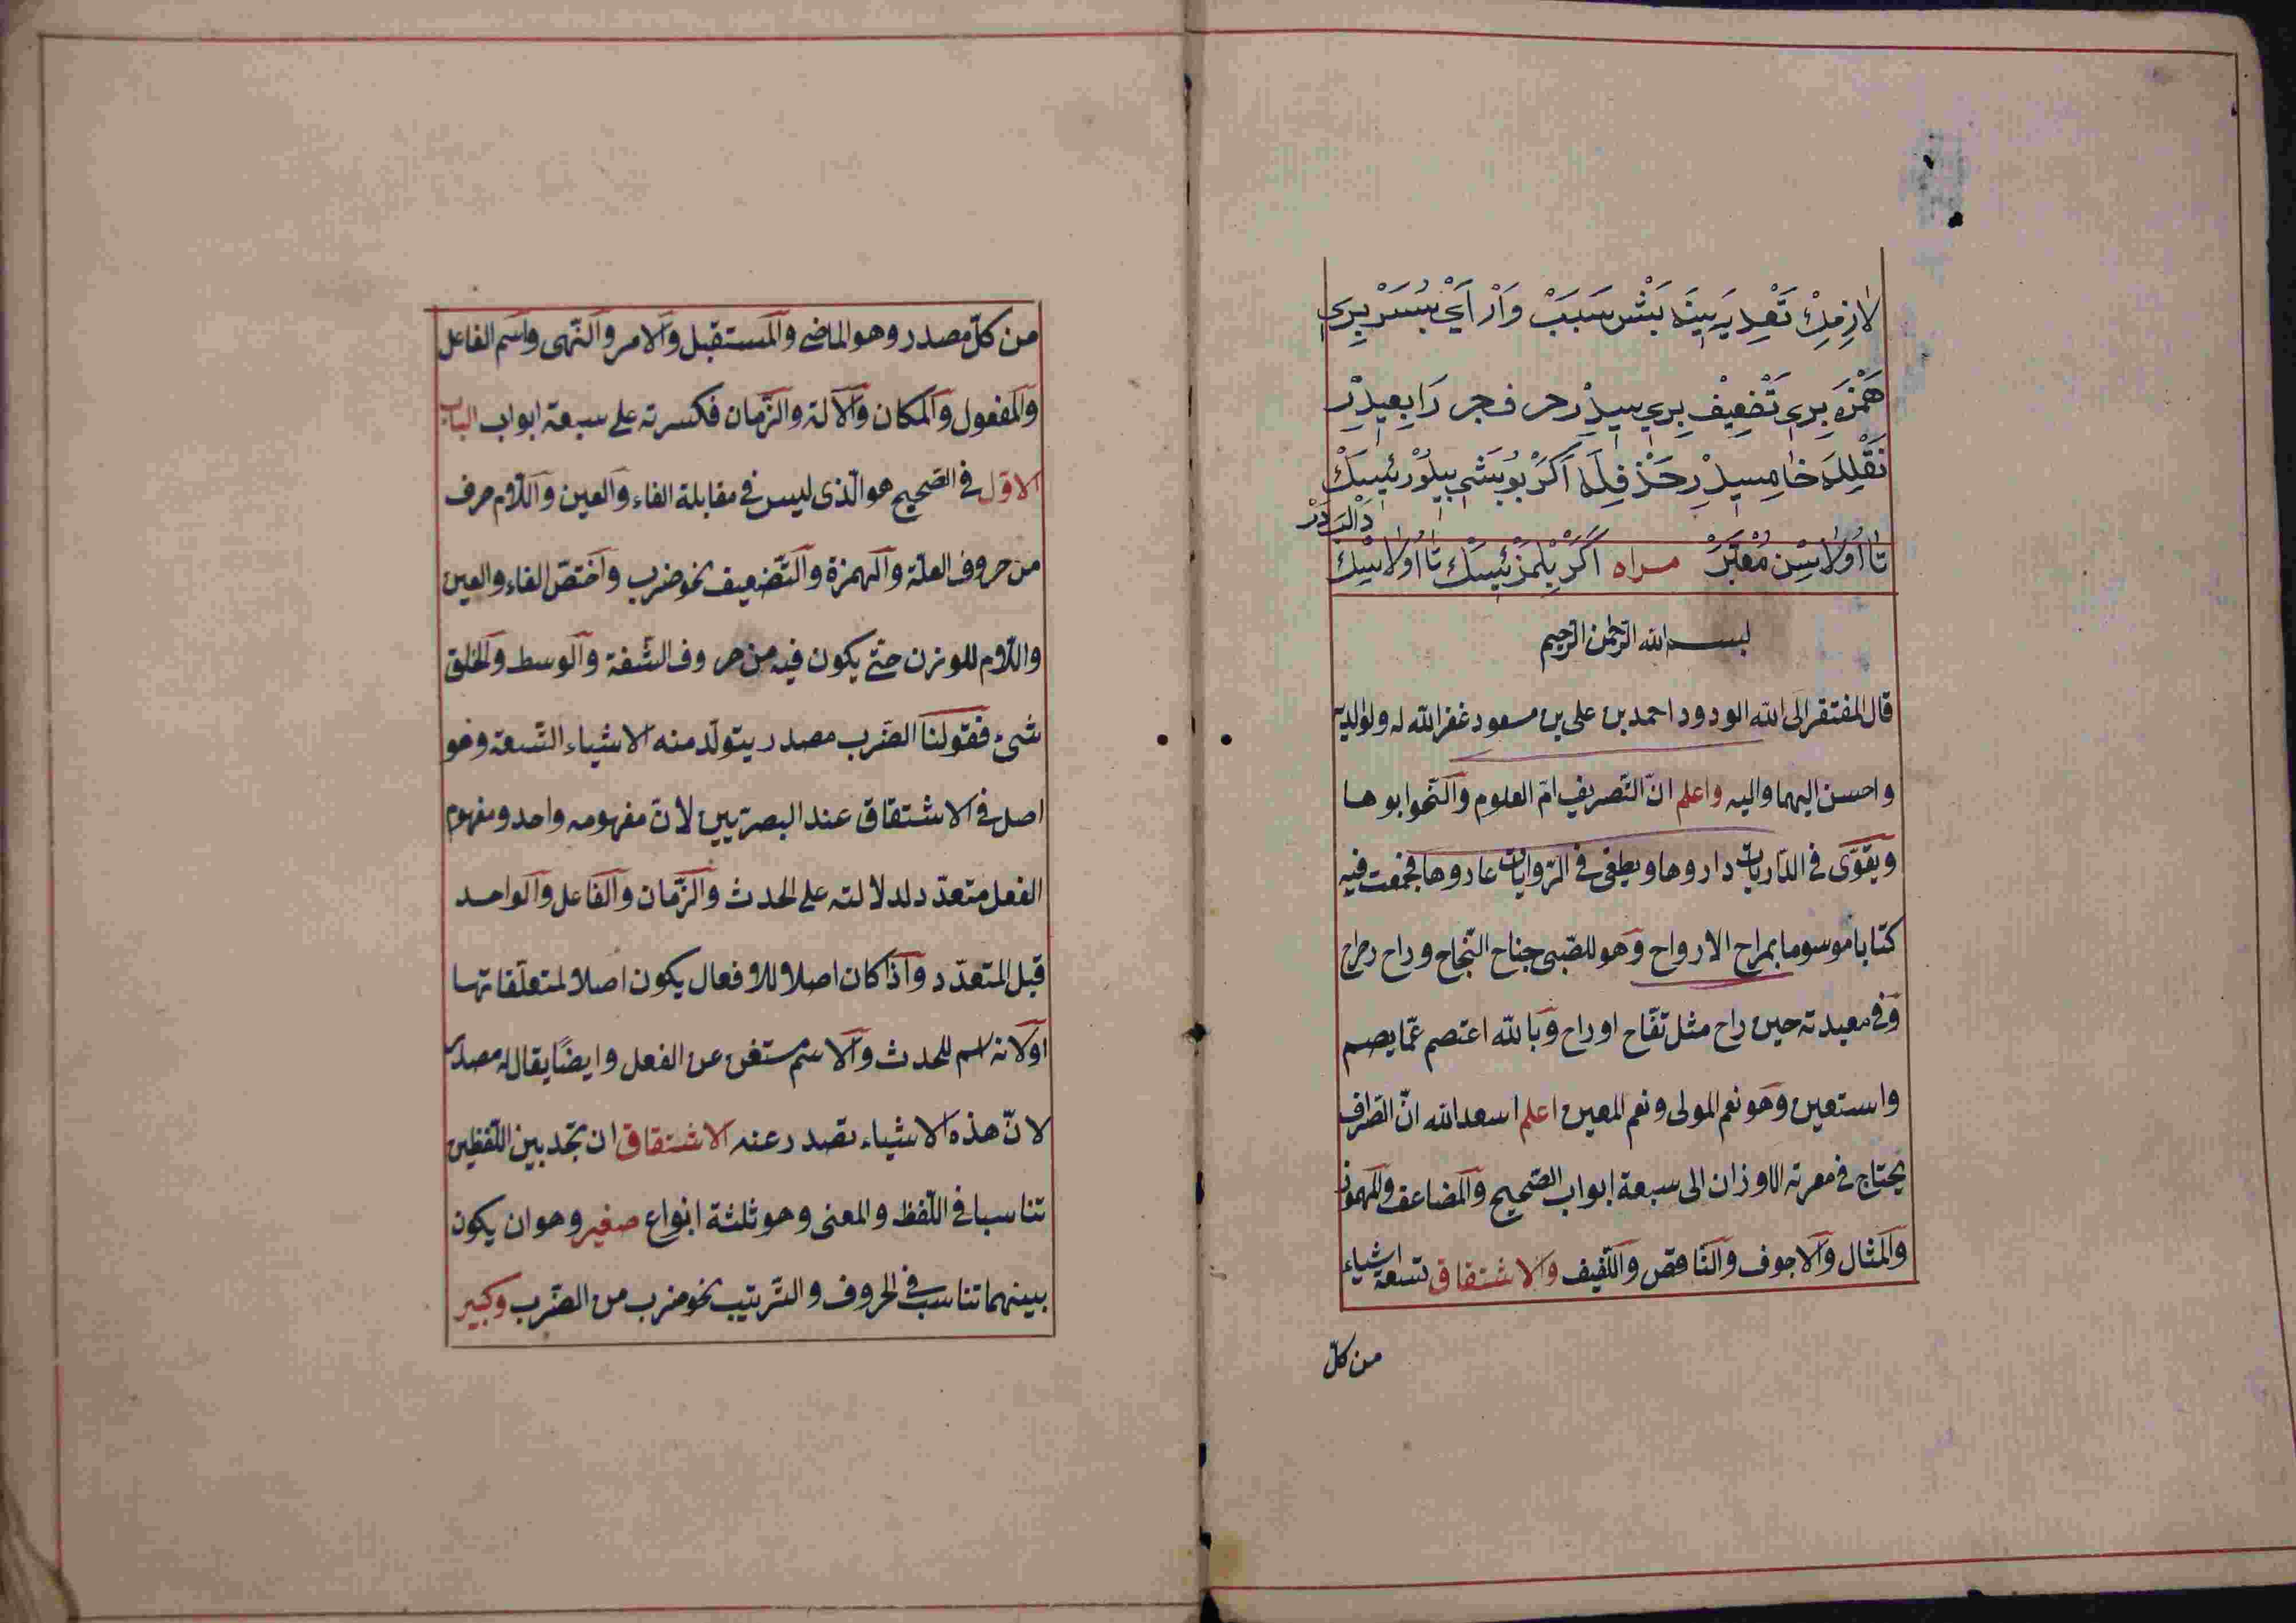 لَازِمِڭْ تَعْدِيَسِينَه بَشْ سَبَبْ وَارْ اَيْ بُسَرْ بِرِي
هَمْزَه بِرِي تَضْعِيفْ بِرِي سِيدِرْ حر فجر رَابِعِيدِرْ
نَقْلِلَه خَامِسِيدِرْ حَذْفِلَه اَكَرْ بُو بَشِي بِيلُورْسِيسَڭْ
دَالْبَدَرْ
تَا اُولَاسِنْ مُعْتَبَرْ مراه اَكَرْ بِلْمَزْسِيسَڭْ تَا اُولَاسِنْ
بسم الله الرحمن الرحيم
قال المفتقر الى الله الودود احمد بن على بن مسعود غفر الله له ولوالديه
واحسن اليهما واليه واعلم انّ التّصريف امّ العلوم والنّحو ابوها
ويقوّى فى الدّاريات داروها ويطفى فى الرّوايات عاروها فجمعت فيه
كتابا موسوما بمراح الارواح وهو للصّبى جناح النّجاح وراح رحراح
وفى معيدته حين راح مثل تفّاح او راح وبالله اعتصم عمّا يصم
واستعين وهو نعم المولى ونعم المعين اعلم اسعد الله انّ الصّراف
يحتاج فى معرته الاوزان الى سبعة ابواب الصّحيح والمضاعف والمهموز
والمثال والاجوف والنّاقص واللّفيف والاشتقاق تسعة اشياء
من كلّ
من كلّ مصدر وهو الماضى والمستقبل والامر والنّهى واسم الفاعل
والمفعول والمكان والآلة والزّمان فكسرته على سبعة ابواب الباب
الاوّل فى الصّحيح هو الّذى ليس فى مقابلة الفاء والعين واللّام حرف
من حروف العلّة والهمزة والتّضعيف نحو ضرب واختصّ الفاء والعين
واللّام للوزن حتّى يكون فيه من حروف الشّفة والوسط والحلق
شىء فقولنا الضّرب مصدر يتولّد منه الاشياء التّسعة وهو
اصل فى الاشتقاق عند البصريّين لانّ مفهومه واحد ومفهوم
الفعل متعدّد لدلالته على الحدث والزّمان والفاعل والواحد
قبل المتعدّد واذا كان اصلا للافعال يكون اصلا لمتعلّقاتها
او لانه اسم للحدث والاسم مستغن عن الفعل وايضًا يقال له مصدر
لانّ هذه الاشياء تصدر عنه الاشتقاق ان تجد بين اللّفظين
تناسبا فى اللّفظ والمعنى وهو ثلثة انواع صغير وهو ان يكون
بينهما تناسب فى الحروف والتّرتيب نحو ضرب من الضّرب وكبير